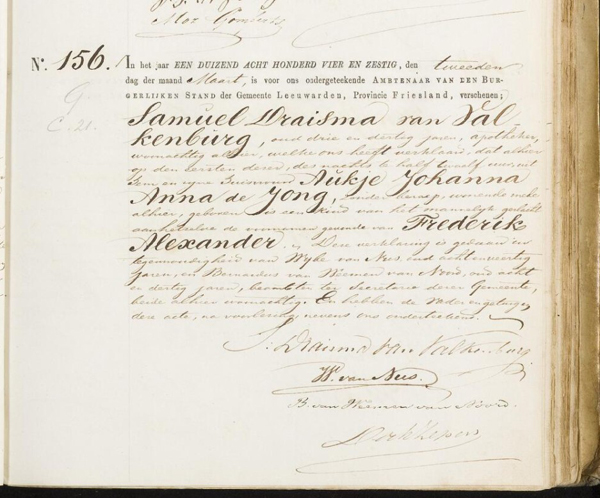 Nº. 156.
In het jaar EEN DUIZEND ACHT HONDERD VIER EN ZESTIG, den tweeden
dag der maand Maart, is voor ons ondergeteekende AMBTENAAR VAN DEN BUR-
GERLIJKEN STAND der Gemeente Leeuwarden, Provincie Friesland, verschenen;
Samuel Draisma van Val
kenburg, oud drie en dertig jaren, apotheker,
woonachtig alhier, welke ons heeft verklaard, dat alhier
op den eersten dezer, des nachts te half twaalf ure, uit
hem en zijne huisvrouw Aukje Johanna
Anna de Jong, zonder beroep, wonende mede
alhier, geboren is een kind van het mannelijk geslacht
aan hetwelk de voornamen gegeven Frederik
Alexander. Deze verklaring is gedaan in
tegenwoordigheid van Wybe van Nes, oud achtenveertig
jaren, en Bernardus van Weemen van Noord, oud acht
en dertig jaren, beambten ter Secretarie dezer Gemeente,
beide alhier woonachtig. En hebben de
deze acte, na voorlezing, nevens ons onderteekend.
S: Draisma van Valkenburg
W. van Nes.
B. van Weemen van Noord.